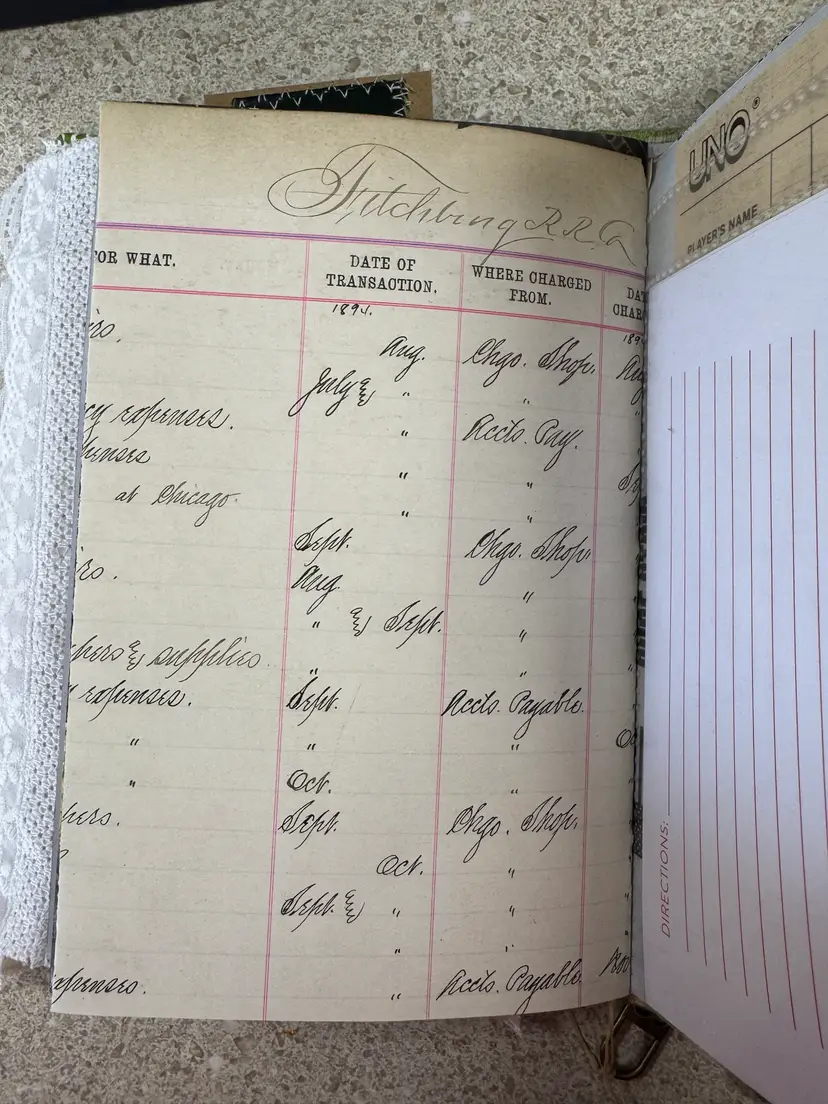 Fitchburg R.R. Co
FOR WHAT. DATE OF TRANSACTION. WHERE CHARGED FROM.
1894. 189
Aug. Chgo. Shop.
July & " "
expenses. " Accts. Pay.
" "
at Chicago. " "
Sept. Chgo. Shop.
Aug "
" & Sept. "
& supplies " "
expenses. Sept. Accts. Payable.
" " "
" Oct. "
Sept. Chgo. Shop.
Oct. "
Sept. & " "
" "
" Accts. Payable
UNO ®
PLAYER'S NAME
DIRECTIONS: